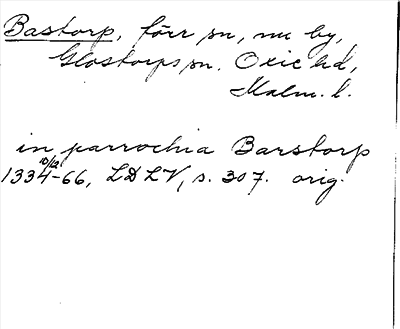 Bastorp, förr sn, nu by,
Glostorps sn. Oxie hd,
Malm. l.
in parrochia Barstorp
10/12
1334-66, LDLV, s. 307. orig.